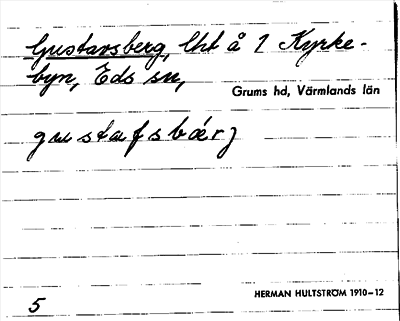 Gustavsberg, lht å 1 Kyrke-
byn, Eds sn,
Grums hd, Värmlands län
gustafsbärj
5
HERMAN HULTSTRÖM 1910–12